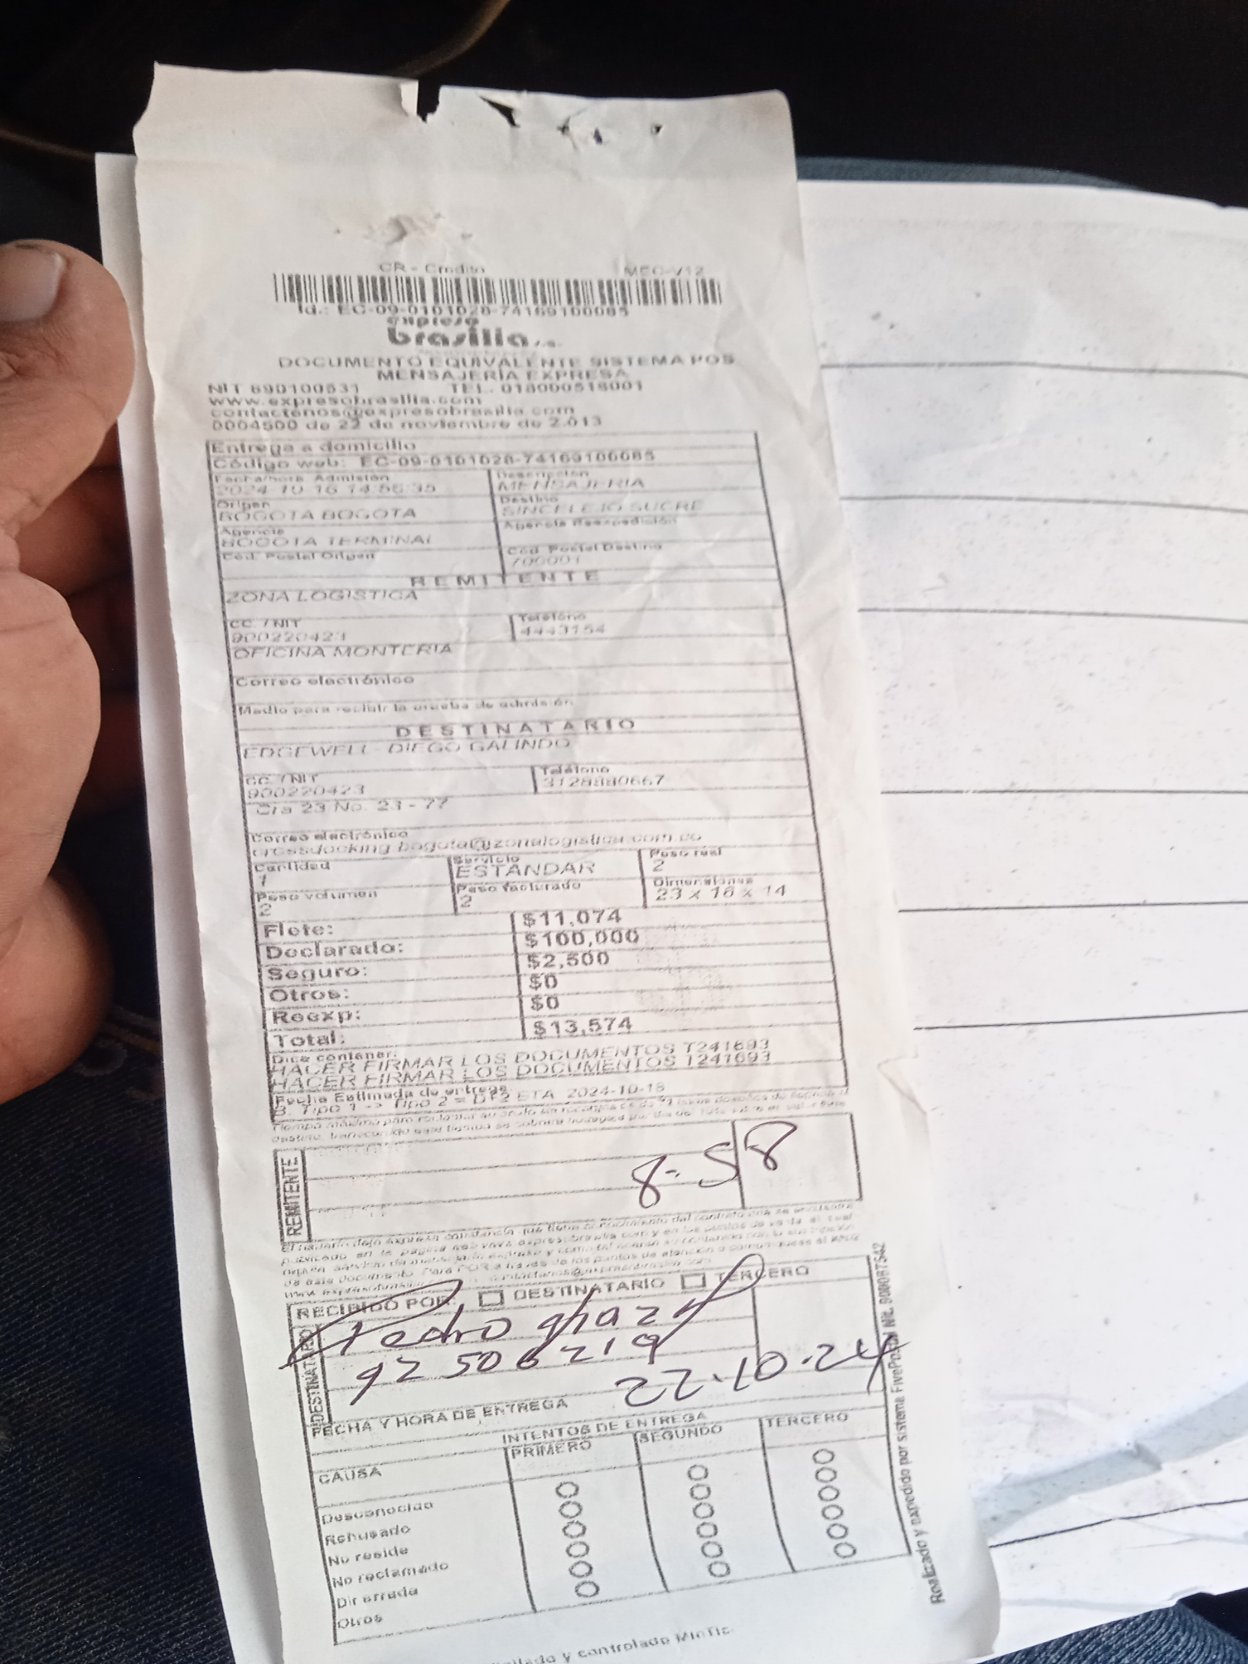 CR - Credito MEC-V12
Id.: EC-09-0101028-74169100085
expreso
brasilia s.a.
DOCUMENTO EQUIVALENTE SISTEMA POS
MENSAJERÍA EXPRESA
NIT 890100531 TEL. 018000518001
www.expresobrasilia.com
contactenos@expresobrasilia.com
0004500 de 22 de noviembre de 2.013
Entrega a domicilio
Código web: EC-09-0101028-74169100085
Fecha/hora Admisión Descripción
2024-10-16 14:56:35 MENSAJERIA
Origen Destino
BOGOTA BOGOTA SINCELEJO SUCRE
Agencia Agencia Reexpedición
BOGOTA TERMINAL
Cód. Postal Origen Cód. Postal Destino
700001
REMITENTE
ZONA LOGISTICA
CC. / NIT Teléfono
900220423 4443154
OFICINA MONTERIA
Correo electrónico
Medio para recibir la prueba de admisión:
DESTINATARIO
EDGEWELL - DIEGO GALINDO
CC. / NIT Teléfono
900220423 3128880667
Cra 23 No. 23 - 77
Correo electrónico
crossdocking.bogota@zonalogistica.com.co
Cantidad Servicio Peso real
1 ESTANDAR 2
Peso volumen Peso facturado Dimensiones
2 2 23 x 16 x 14
Flete: $11,074
Declarado: $100,000
Seguro: $2,500
Otros: $0
Reexp: $0
Total: $13,574
Dice contener:
HACER FIRMAR LOS DOCUMENTOS T241693
HACER FIRMAR LOS DOCUMENTOS T241693
Fecha Estimada de entrega
ETA: 2024-10-18
REMITENTE
8-58
RECIBIDO POR: DESTINATARIO TERCERO
DESTINATARIO
Pedro
92506219
22-10-24
FECHA Y HORA DE ENTREGA
INTENTOS DE ENTREGA
CAUSA PRIMERO SEGUNDO TERCERO
Desconocido
Rehusado
No reside
No reclamado
Dir errada
Otros
y controlado MinTic
Realizado y expedido por sistema FivePostal Nit. 900087542